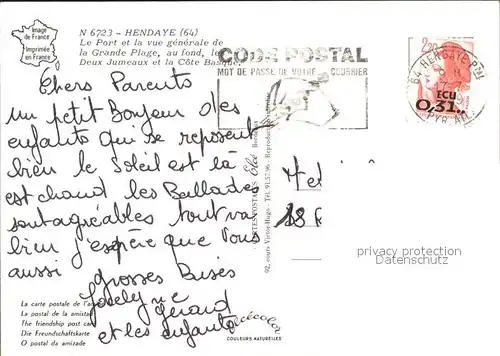 Image
de France
Imprimée
en France
N 6723 - HENDAYE (64)
Le Port et la vue générale de
la Grande Plage, au fond, les
Deux Jumeaux et la Côte Basque
CODE POSTAL
MOT DE PASSE DE VOTRE COURRIER
64 HENDAYE PAL
PYR. ATL.
2,20
ECU
0,31
Chers Parents
un petit Bonjour des
enfants qui se reposent
bien le soleil est là
est chaud les Ballades
sont agréables tout va
bien j'espère que vous
aussi
grosses Bises
Jocelyne
Gérard
et les enfants
Elcé
92, cours Victor-Hugo - Tél. 91.57.96
Met
18
La carte postale de l'am
La postal de la amistad
The friendship post car
Die Freundschaftskarte
O postal da amizade
COULEURS NATURELLES
privacy protection
akpool.co.uk